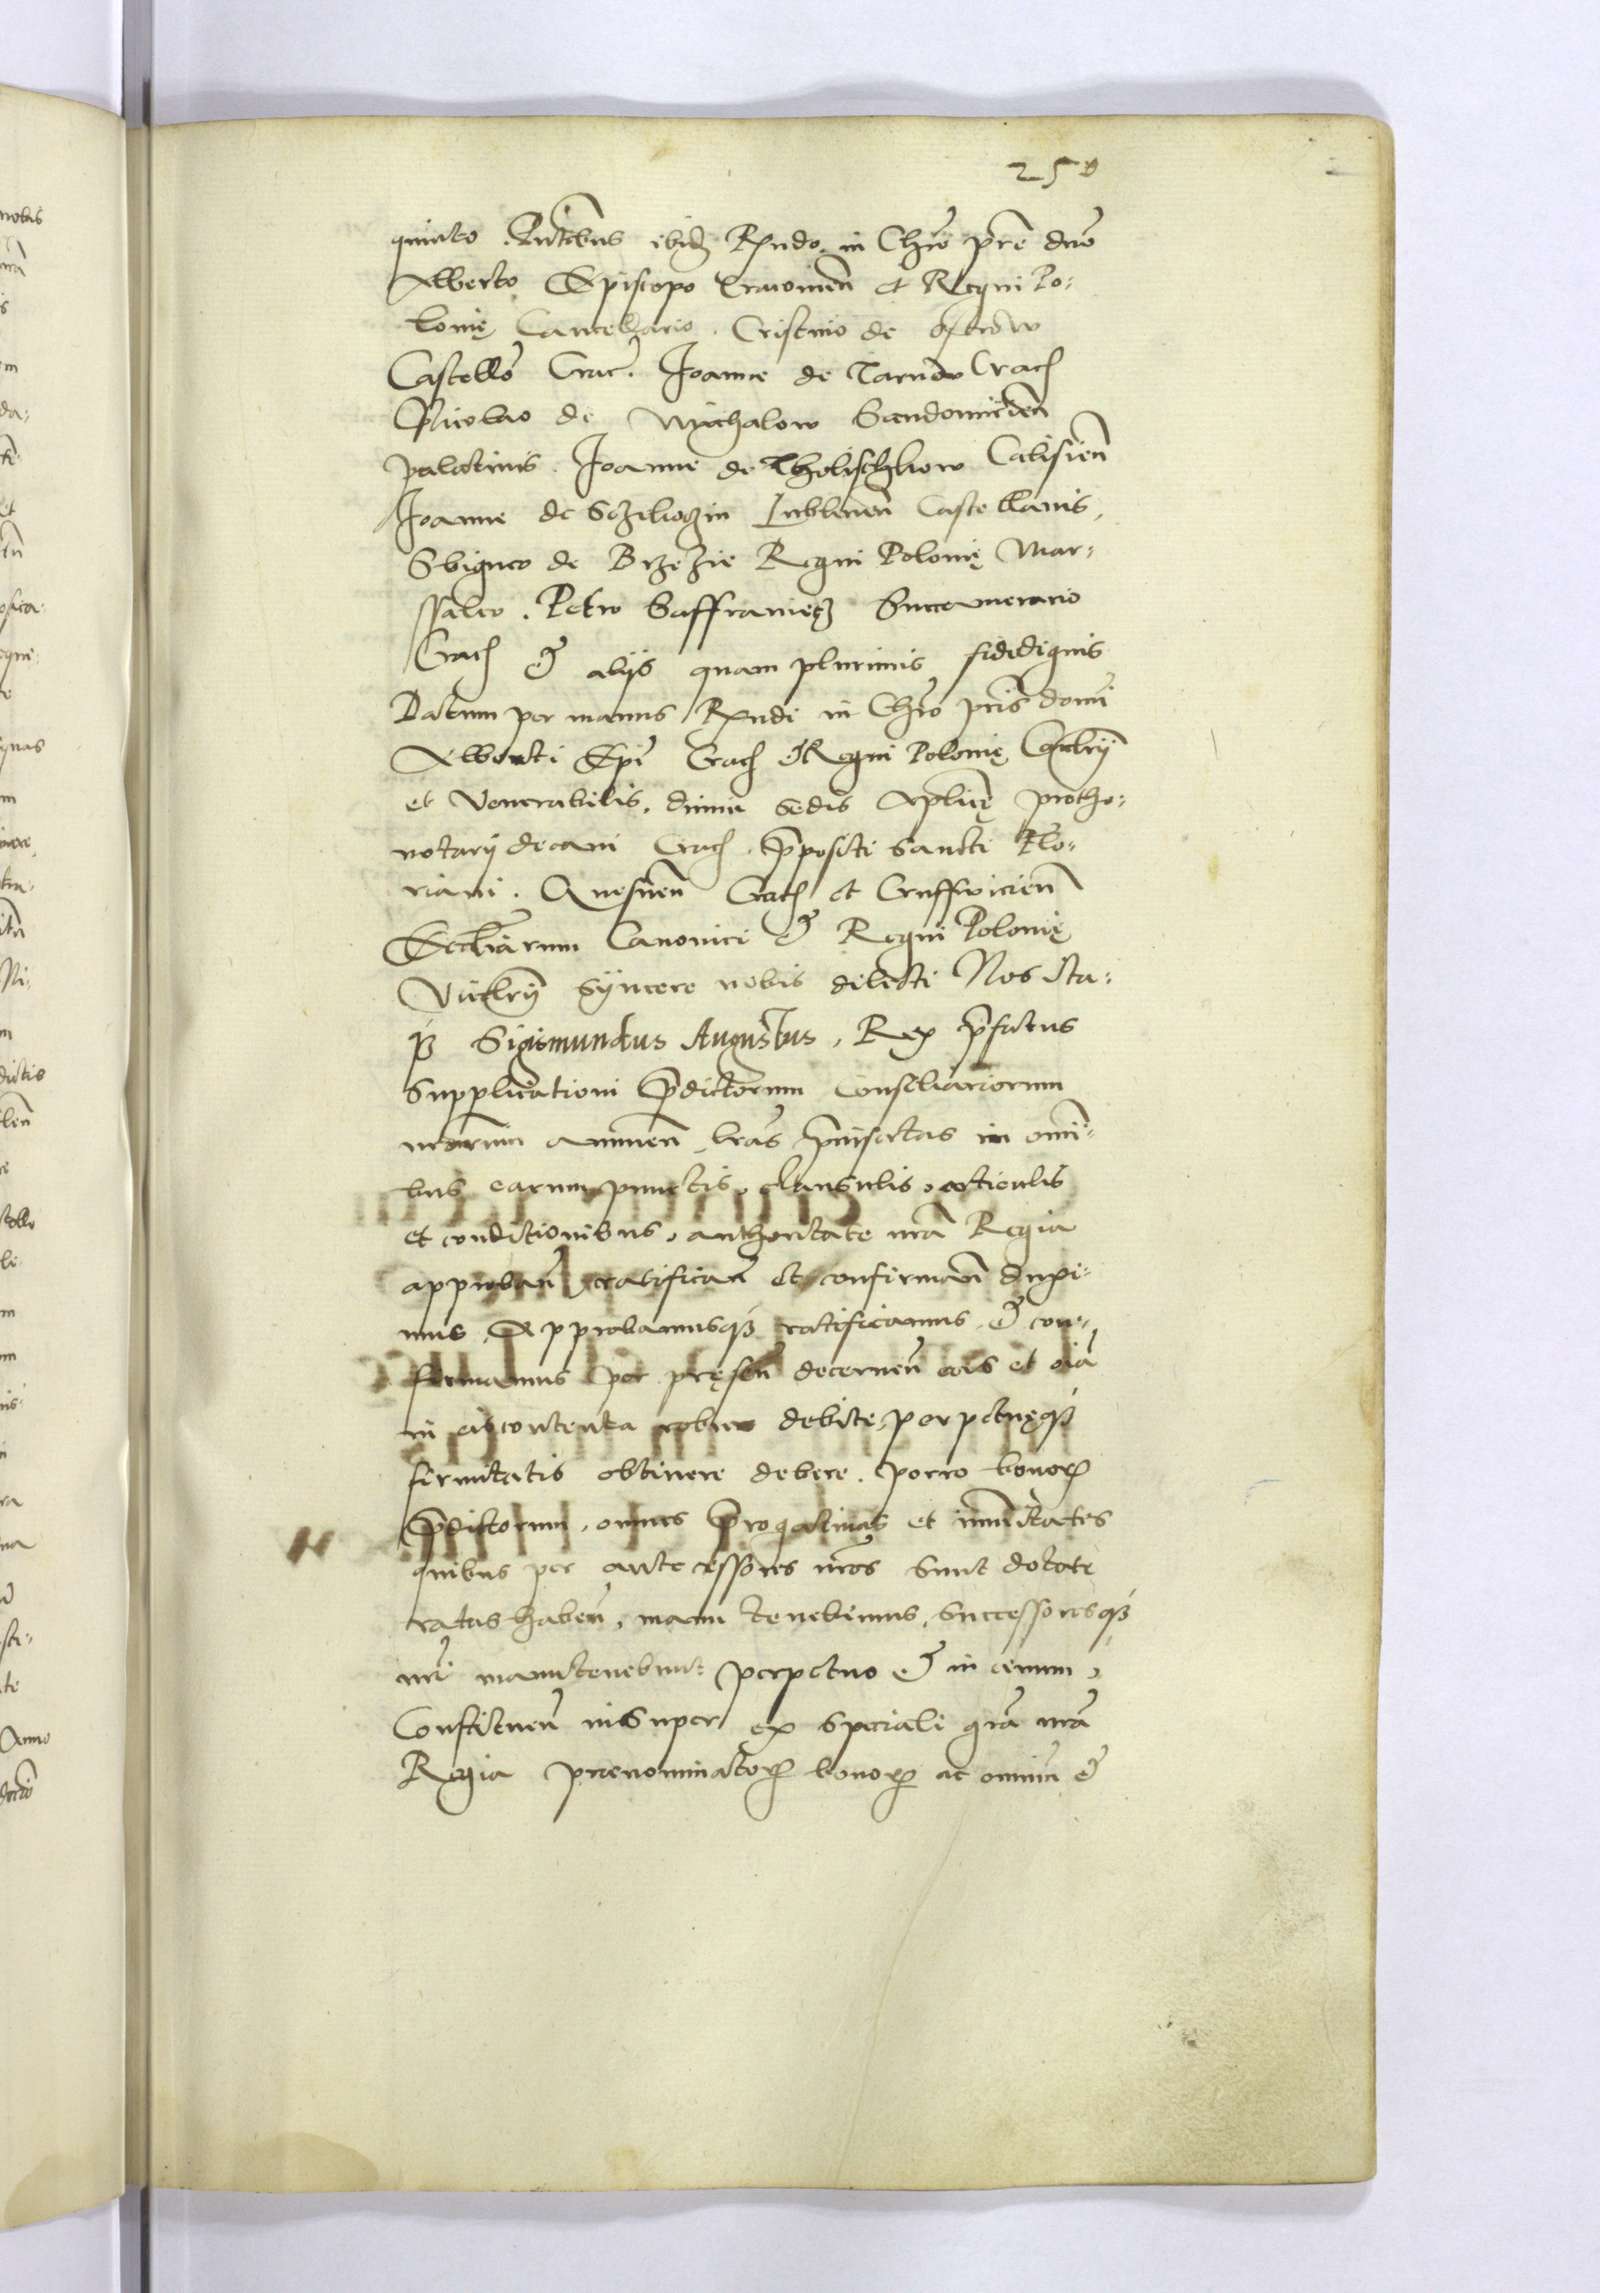 250
quinto. Pñtibus ibidẽ Rẽndo in Chro pr̃e dño
Alberto Episcopo Cracovieñ et Regni Po-
lonię Cancellario. Cristino de Ostrow
Castell̃o Crac̃. Joanne de Tarnow Crach
Nicolao de Michalow Sandomirieñ
palatinis. Joanne de Tholischkow Calisieñ
Joanne de Sczekoczin Lublineñ Castellanis,
Sbigneo de Brzezie Regni Polonię Mar-
ssalco. Petro Saffraniecz Succamerario
Crach et alijs quam plurimis fidedignis
Datum per manus Rẽndi in Chro pr̃is domĩ
Alberti Epĩ Crach et Regni Polonię Canclrĩj
et Venerabilis. sedis Aplicę protho-
notarij decani Crach. p̃positi Sancti Flo-
riani. Gnesneñ Crach et Crusffvicieñ
Eccliãrum Canonici et Regni Polonię
Viclrĩj Syncere nobis dilecti Nos ita-
q3 Sigismundus Augustus, Rex p̃fatus
Supplicationi p̃dictorum Consiliariorum
nr̃orum annueñ, lr̃as p̃insertas in omĩ-
bus earum punctis, clausulis, articulis
et conditionibus, authoritate nr̃a Regia
approbañ ratificañ et confirmañ duxi-
mus, Approbamusq3 ratificamus, et con-
firmamus per pręseñ decerneñ eas et oĩa
in eis contenta robur debite, perpetuęq3
firmitatis obtinere debere. Porro bonorꝝ
p̃dictorum, omnes p̃rogativas et immũitates
quibus per antecessores nr̃os sunt dotate
ratas habeñ, manu tenebimus, Successoresq3
nr̃i manutenebunt perpetuo et in aevum,
Constitueñ insuper ex speciali gr̃a nr̃a
Regia prænominatorꝝ bonorꝝ ac omniũ et